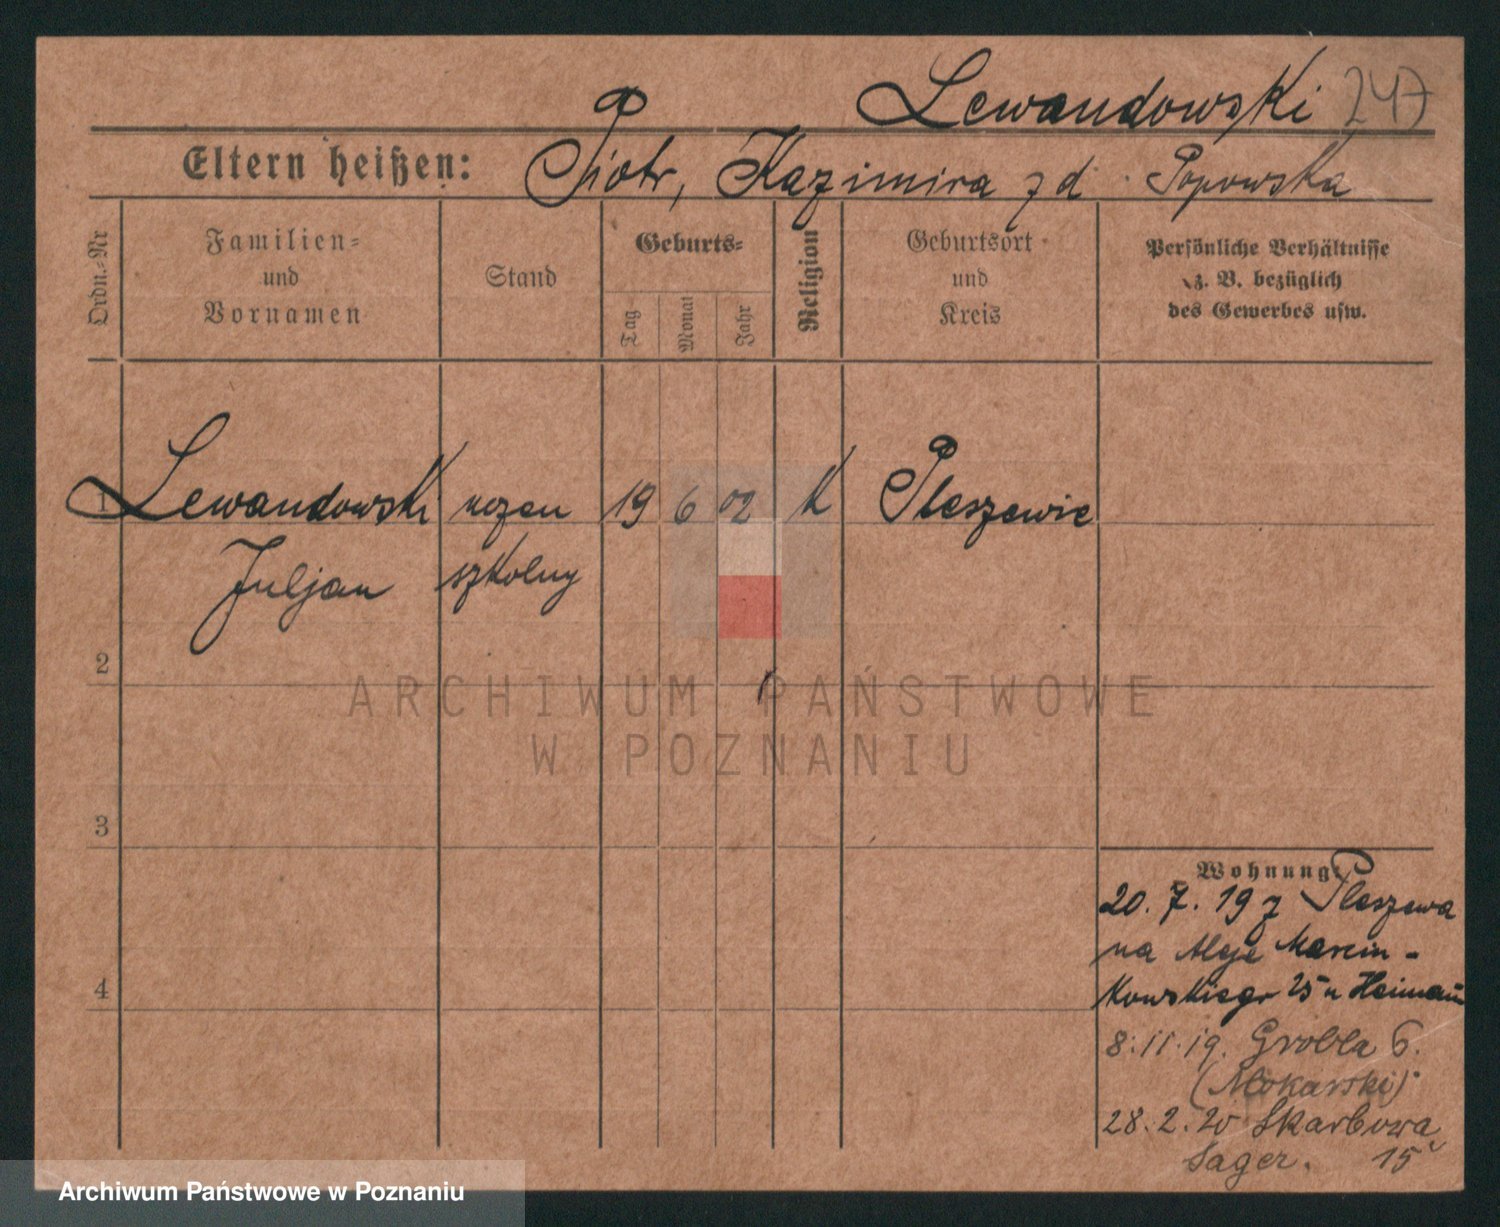 Lewandowski 247
Eltern heißen: Piotr, Kazimira z d. Popowska
Ordn.-Nr
Familien-
und
Vornamen
Stand
Geburts-
Tag
Monat
Jahr
Religion
Geburtsort
und
Kreis
Persönliche Verhältnisse
z. B. bezüglich
des Gewerbes usw.
1 Lewandowski uczen 19 6 02 K Pleszewie
Juljan szkolny
2
ARCHIWUM PAŃSTWOWE
W POZNANIU
3
Wohnung:
20. 7. 19 z Pleszewa
na Aleje Marcin-
4
kowskiego 25 u
8. 11. 19. Grobla 6.
(Mokarski)
28. 2. 20 Skarbowa
Sager. 15
Archiwum Państwowe w Poznaniu